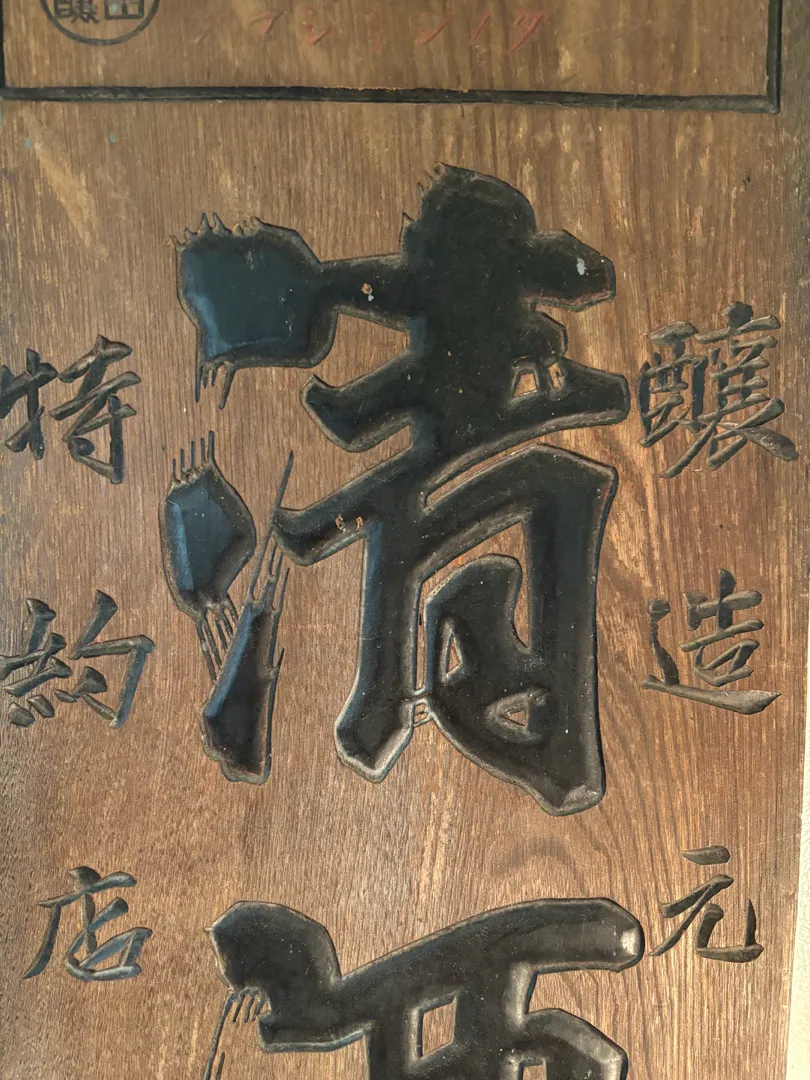 釀造元
清酒
特約店